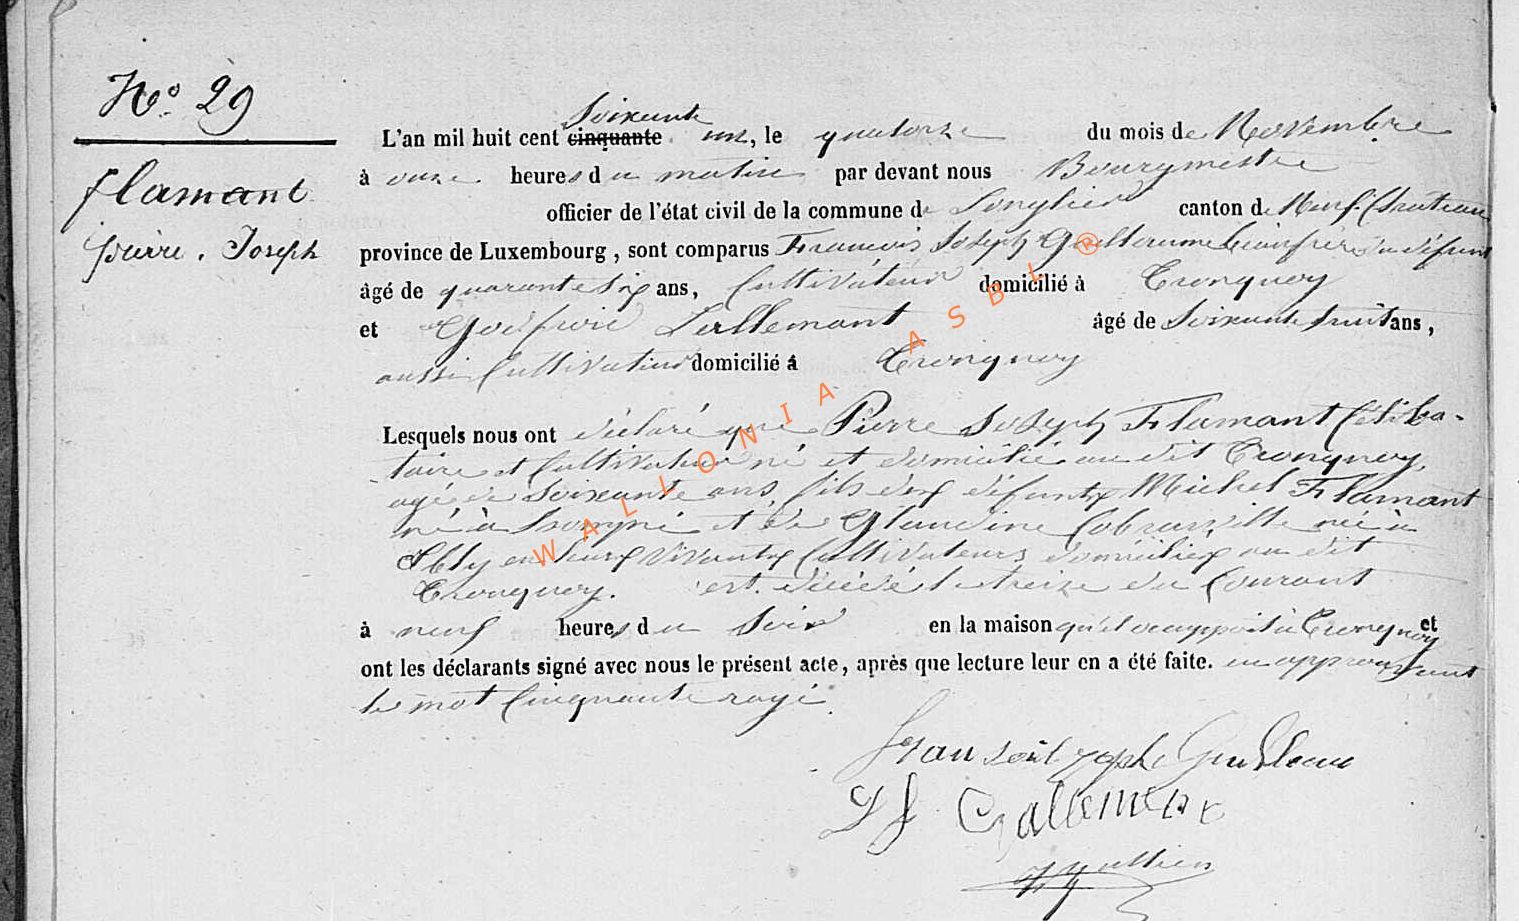 N.o 29
flamant
pierre. Joseph
Soixante
L'an mil huit cent cinquante un, le quatorze du mois de Novembre
à onze heures du matin par devant nous Bourgmestre
officier de l'état civil de la commune de Longlier canton de Neuf-Chateau
province de Luxembourg, sont comparus Francois Joseph Guillaume beaufrère du défunt
âgé de quarante six ans, Cultivateur domicilié à Tronquoy
et Godfroid Lallemant âgé de Soixante huit ans,
aussi Cultivateur domicilié á Tronquoy
Lesquels nous ont déclaré que Pierre Joseph Flamant Céliba-
taire et Cultivateur né et domicilié au dit Tronquoy,
agé de Soixante ans, fils des défunts Michel Flamant
né à et de Glaudine née à
en leurs vivants Cultivateurs domiciliés au dit
Tronquoy. est décédé le treize du Courant
à neuf heures du Soir en la maison qu'il occuppoit à Tronquoy et
ont les déclarants signé avec nous le présent acte, après que lecture leur en a été faite. en approuvant
le mot Cinquante rayé.
fransoit joseph Guillaume
Gallement
WALLONIA ASBL ®